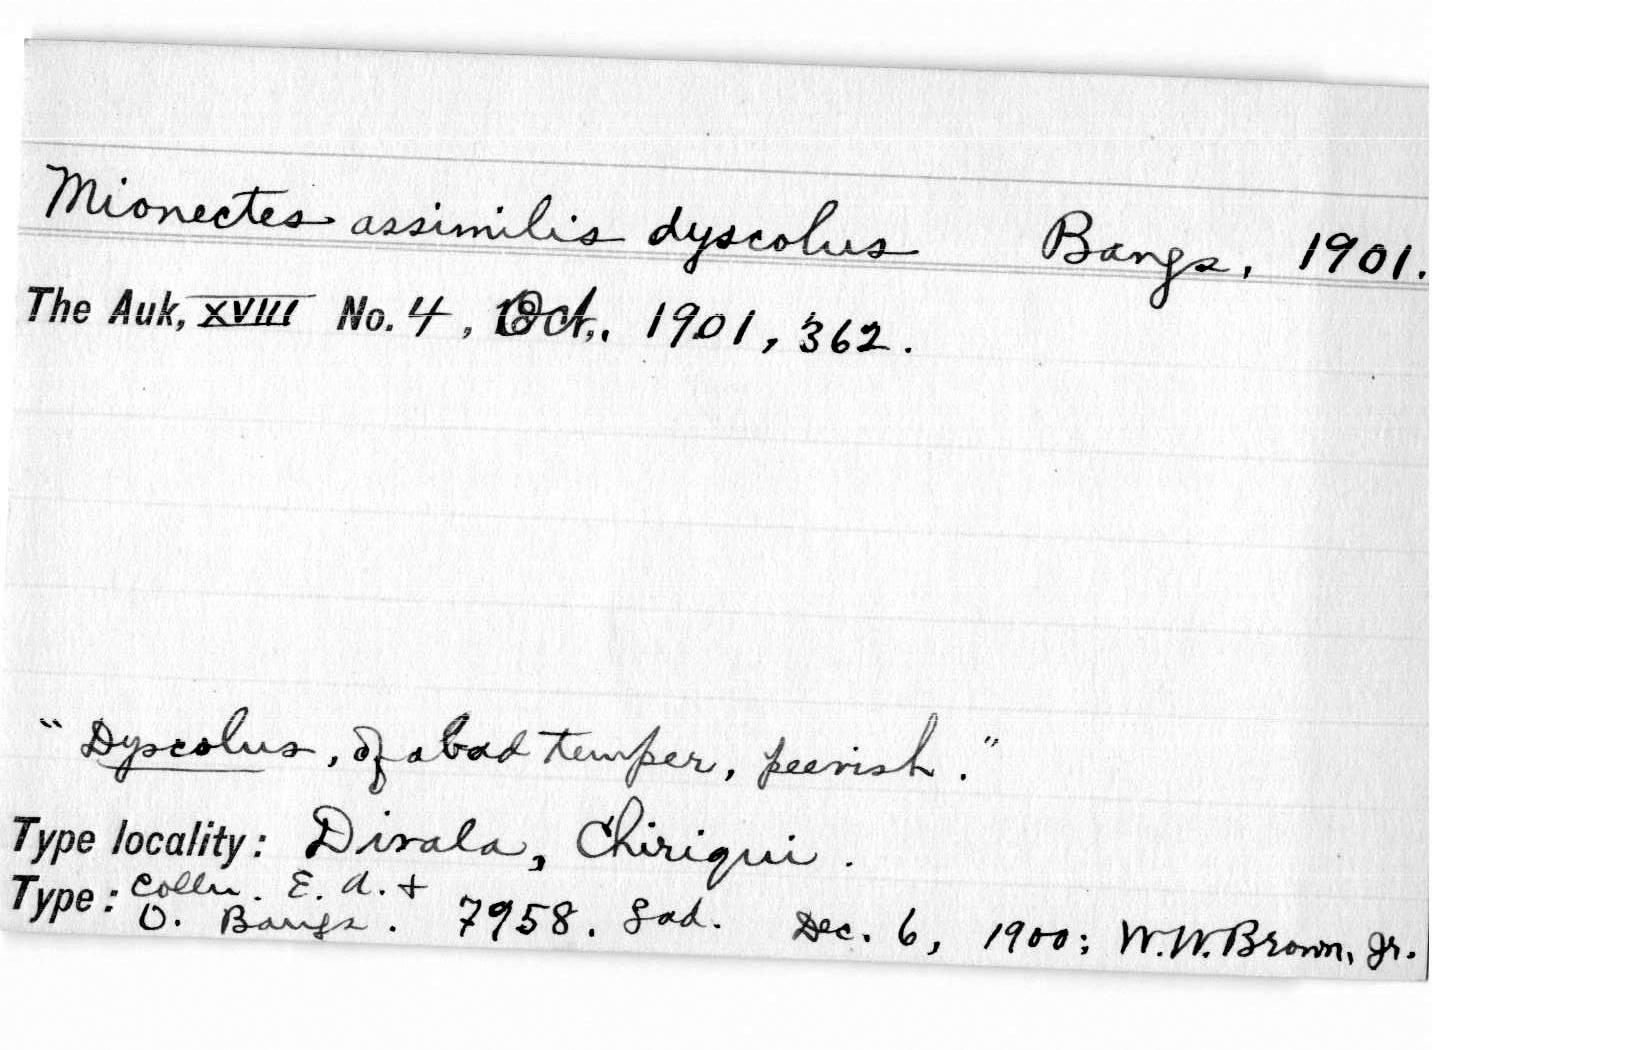 Mionectes assimilis dyscolus Bangs, 1901.
The Auk, XVIII No. 4, Oct., 1901, 362.
"Dyscolus, of a bad temper, peevish."
Type locality: Divala, Chiriqui.
Type: Colln. E. A. +
O. Bangs. 7958. ad. Dec. 6, 1900; W.W. Brown, Jr.